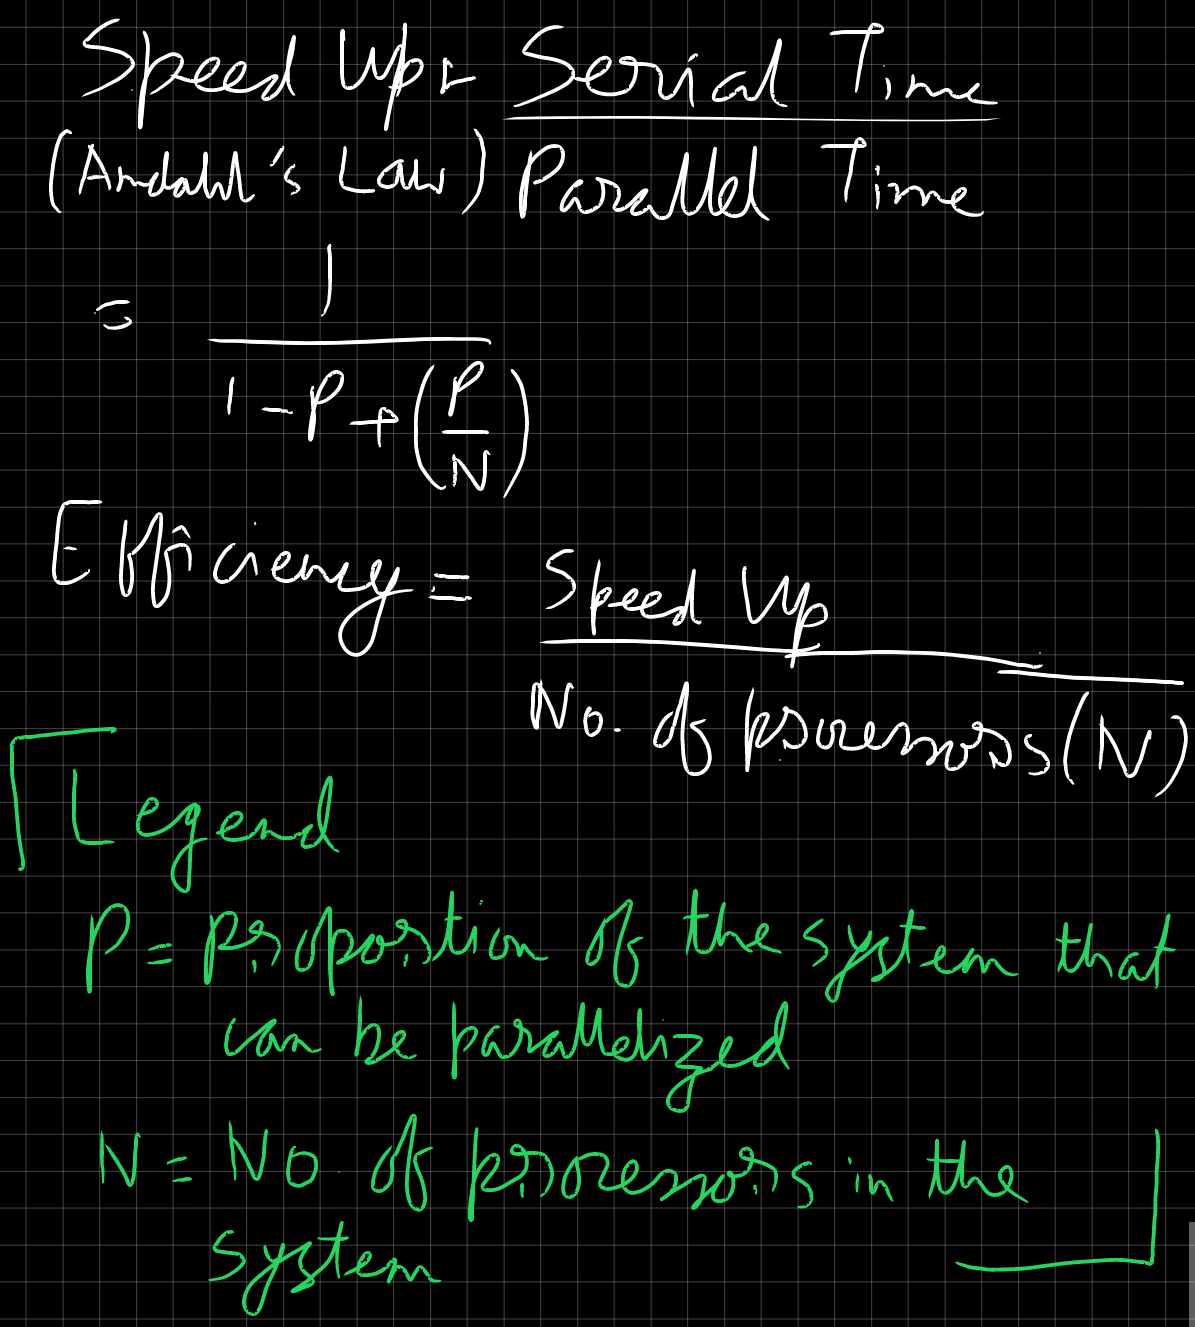 Speed Up = Serial Time
(Amdahl's Law) Parallel Time
= 1
1 - P + (P
N)
Efficiency = Speed Up
No. of processors (N)
Legend
P = proportion of the system that
can be parallelized
N = No. of processors in the
system